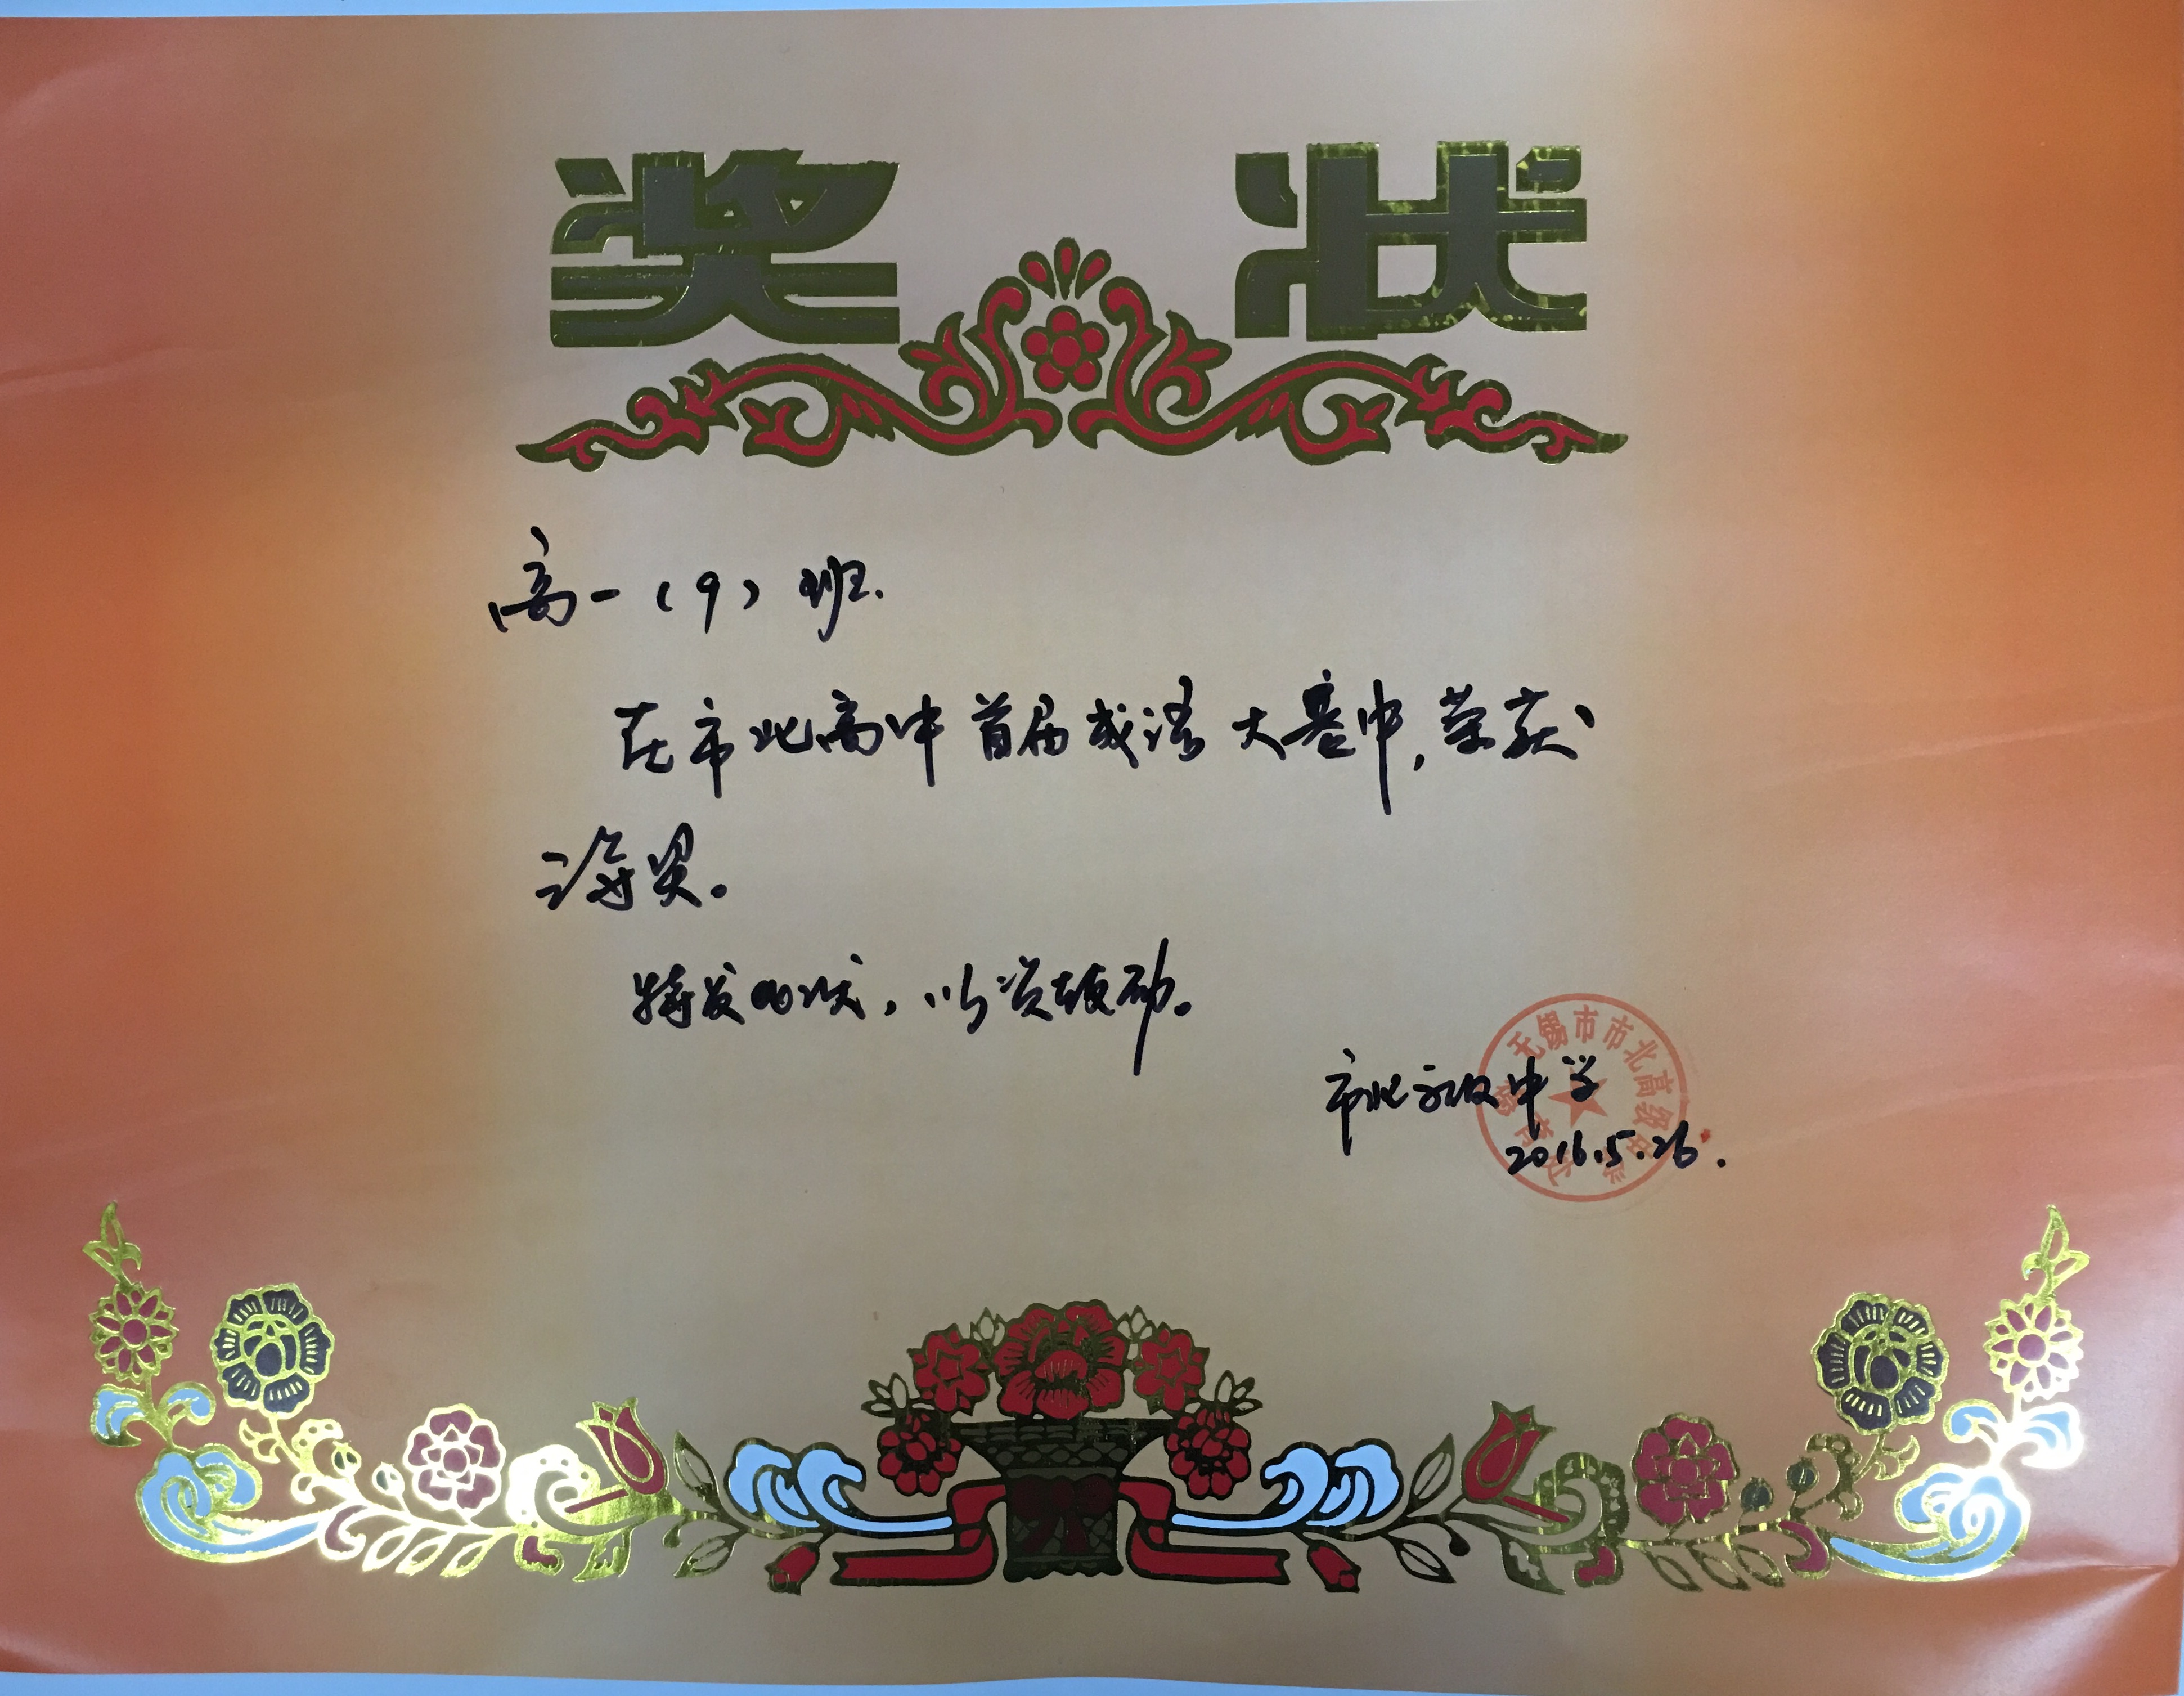 奖 状
高一（9）班.
在市北高中首届成语大赛中,荣获
三等奖。
特发此状，以资鼓励。
市北高级中学
2016.5.26.
无锡市市北高级中学
德育处